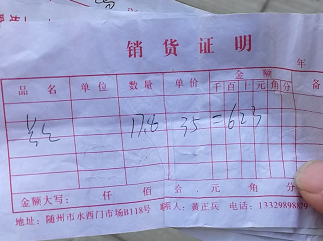 销货证明
年
品名 单位 数量 单价 金额 备
千 百 十 元 角 分
17.6 35 = 623
金额大写： 仟 佰 拾 元 角 分
地址：随州市水西门市场B118号 联系人：黄正兵 电话：13329898829